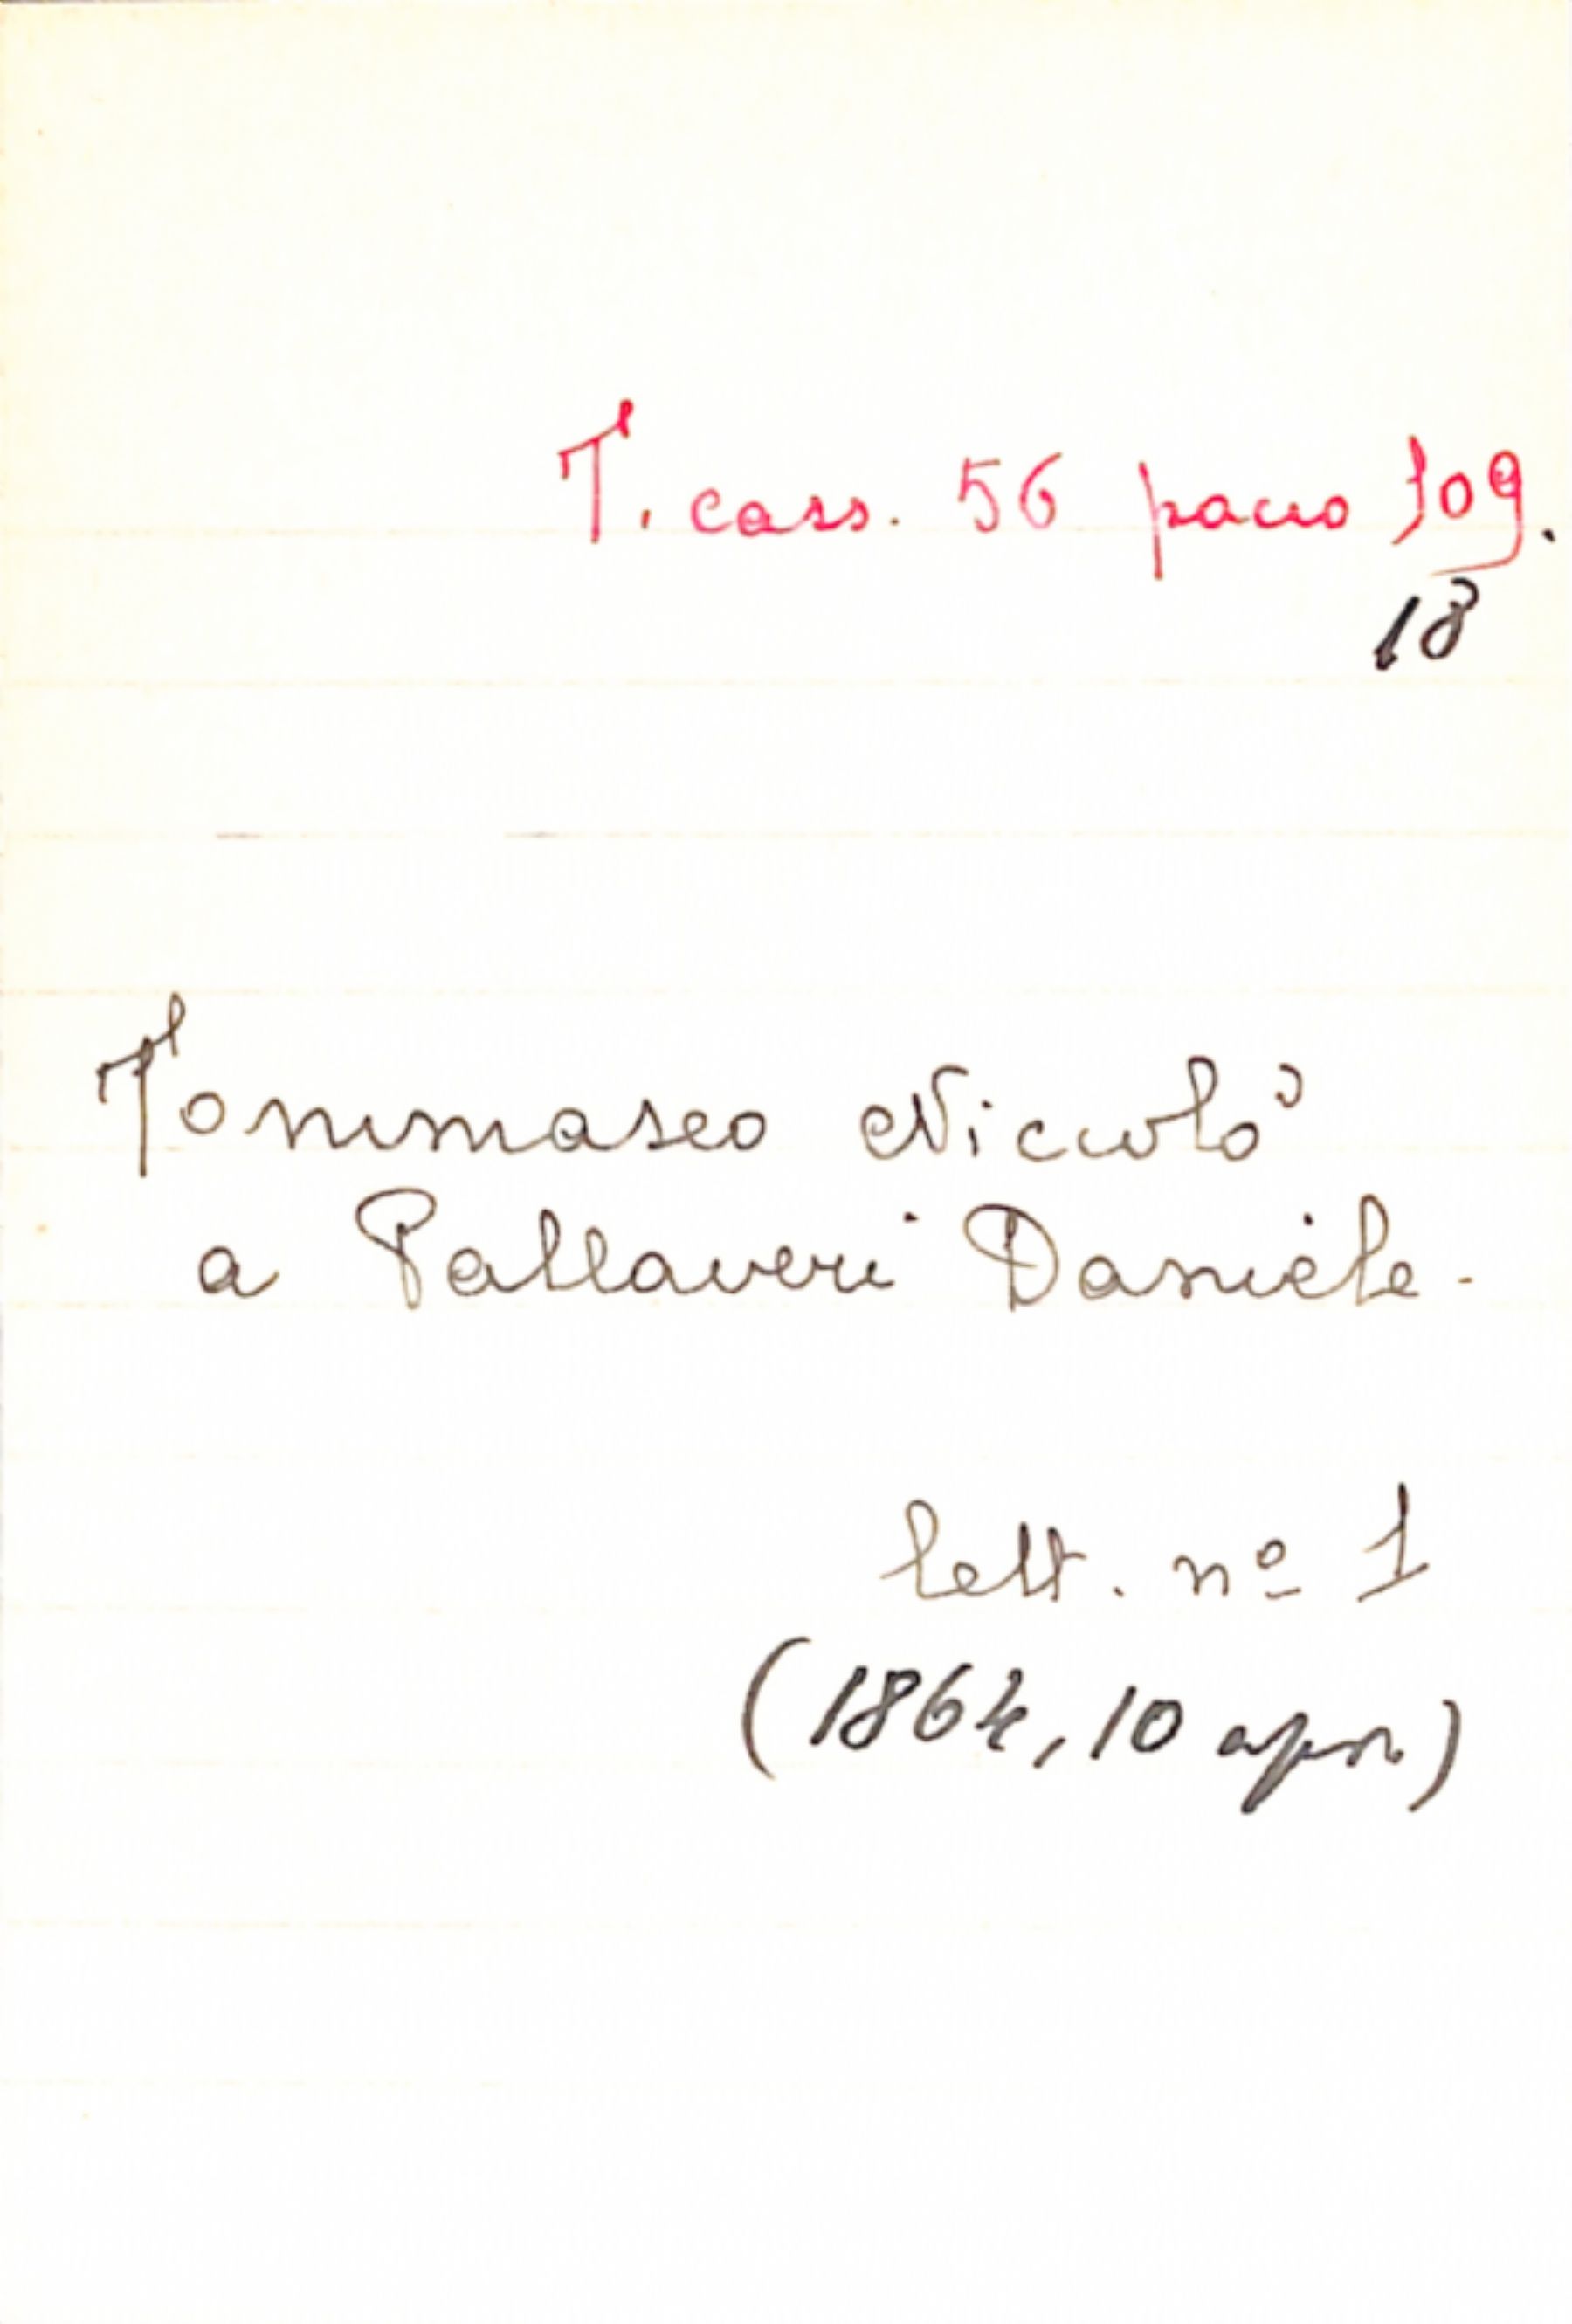 T. cass. 56 pacco 109.
18
Tommaseo Niccolò
a Pallaveri Daniele.
lett. nº 1
(1864, 10 apr.)